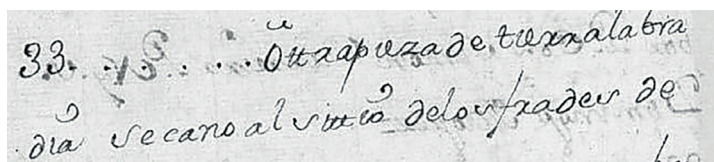 33. . . . . . . . Ottra pieza de tierra labra
dia secano al sittio delos frades de